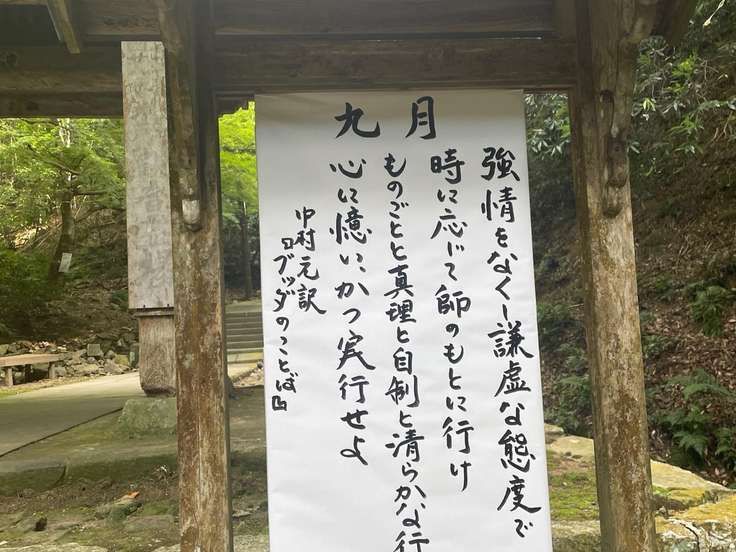 九月
強情をなくし謙虚な態度で
時に応じて師のもとに行け
ものごとと真理と自制と清らかな行
心に憶い、かつ実行せよ
中村元訳
『ブッダのことば』